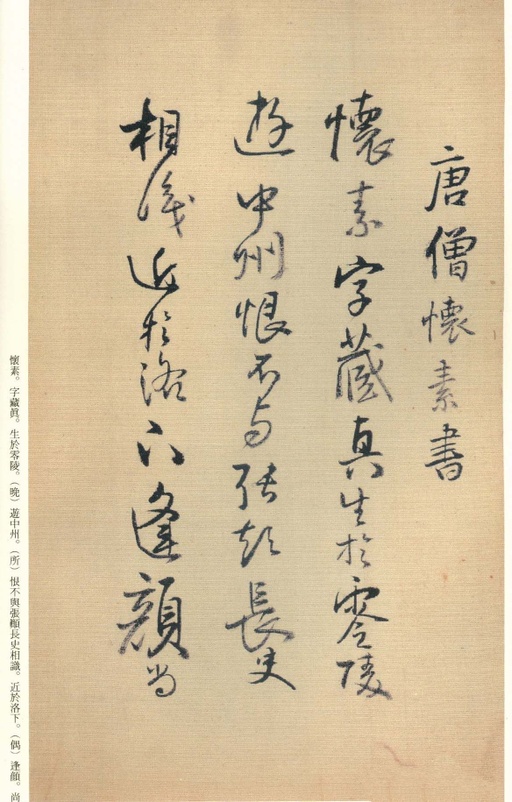 唐僧懷素書
懷素字藏真生於零陵
遊中州恨不与張顛長史
相識近於洛下逢顏尚
懷素。字藏眞。生於零陵。（晚）遊中州。（所）恨不與張顚長史相識。近於洛下。（偶）逢顔。尚